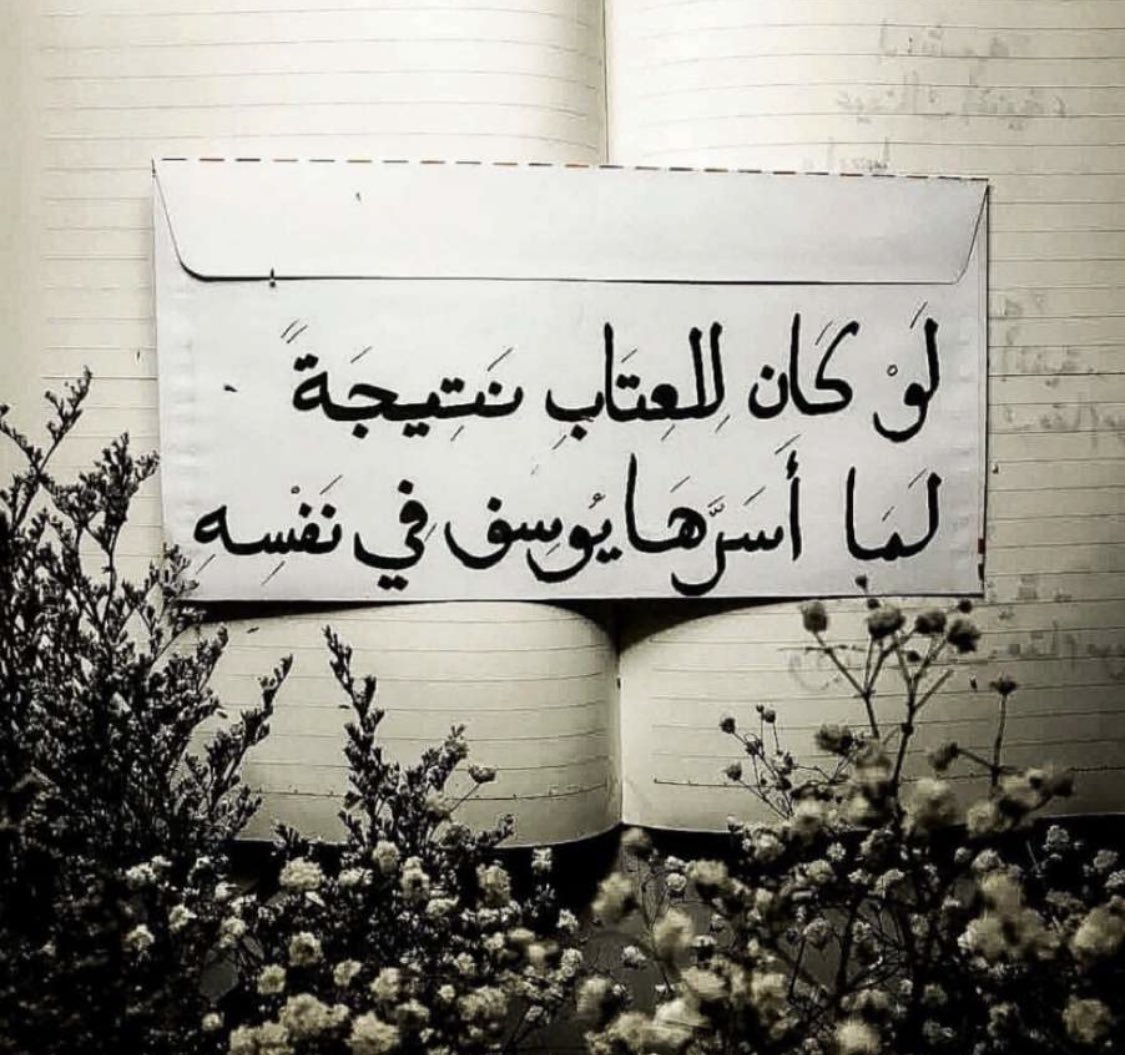 لَوْ كَان لِلعِتَابِ نَتِيجَةً
لَمَا أَسَرَّهَا يُوسِف فِي نَفْسِهِ